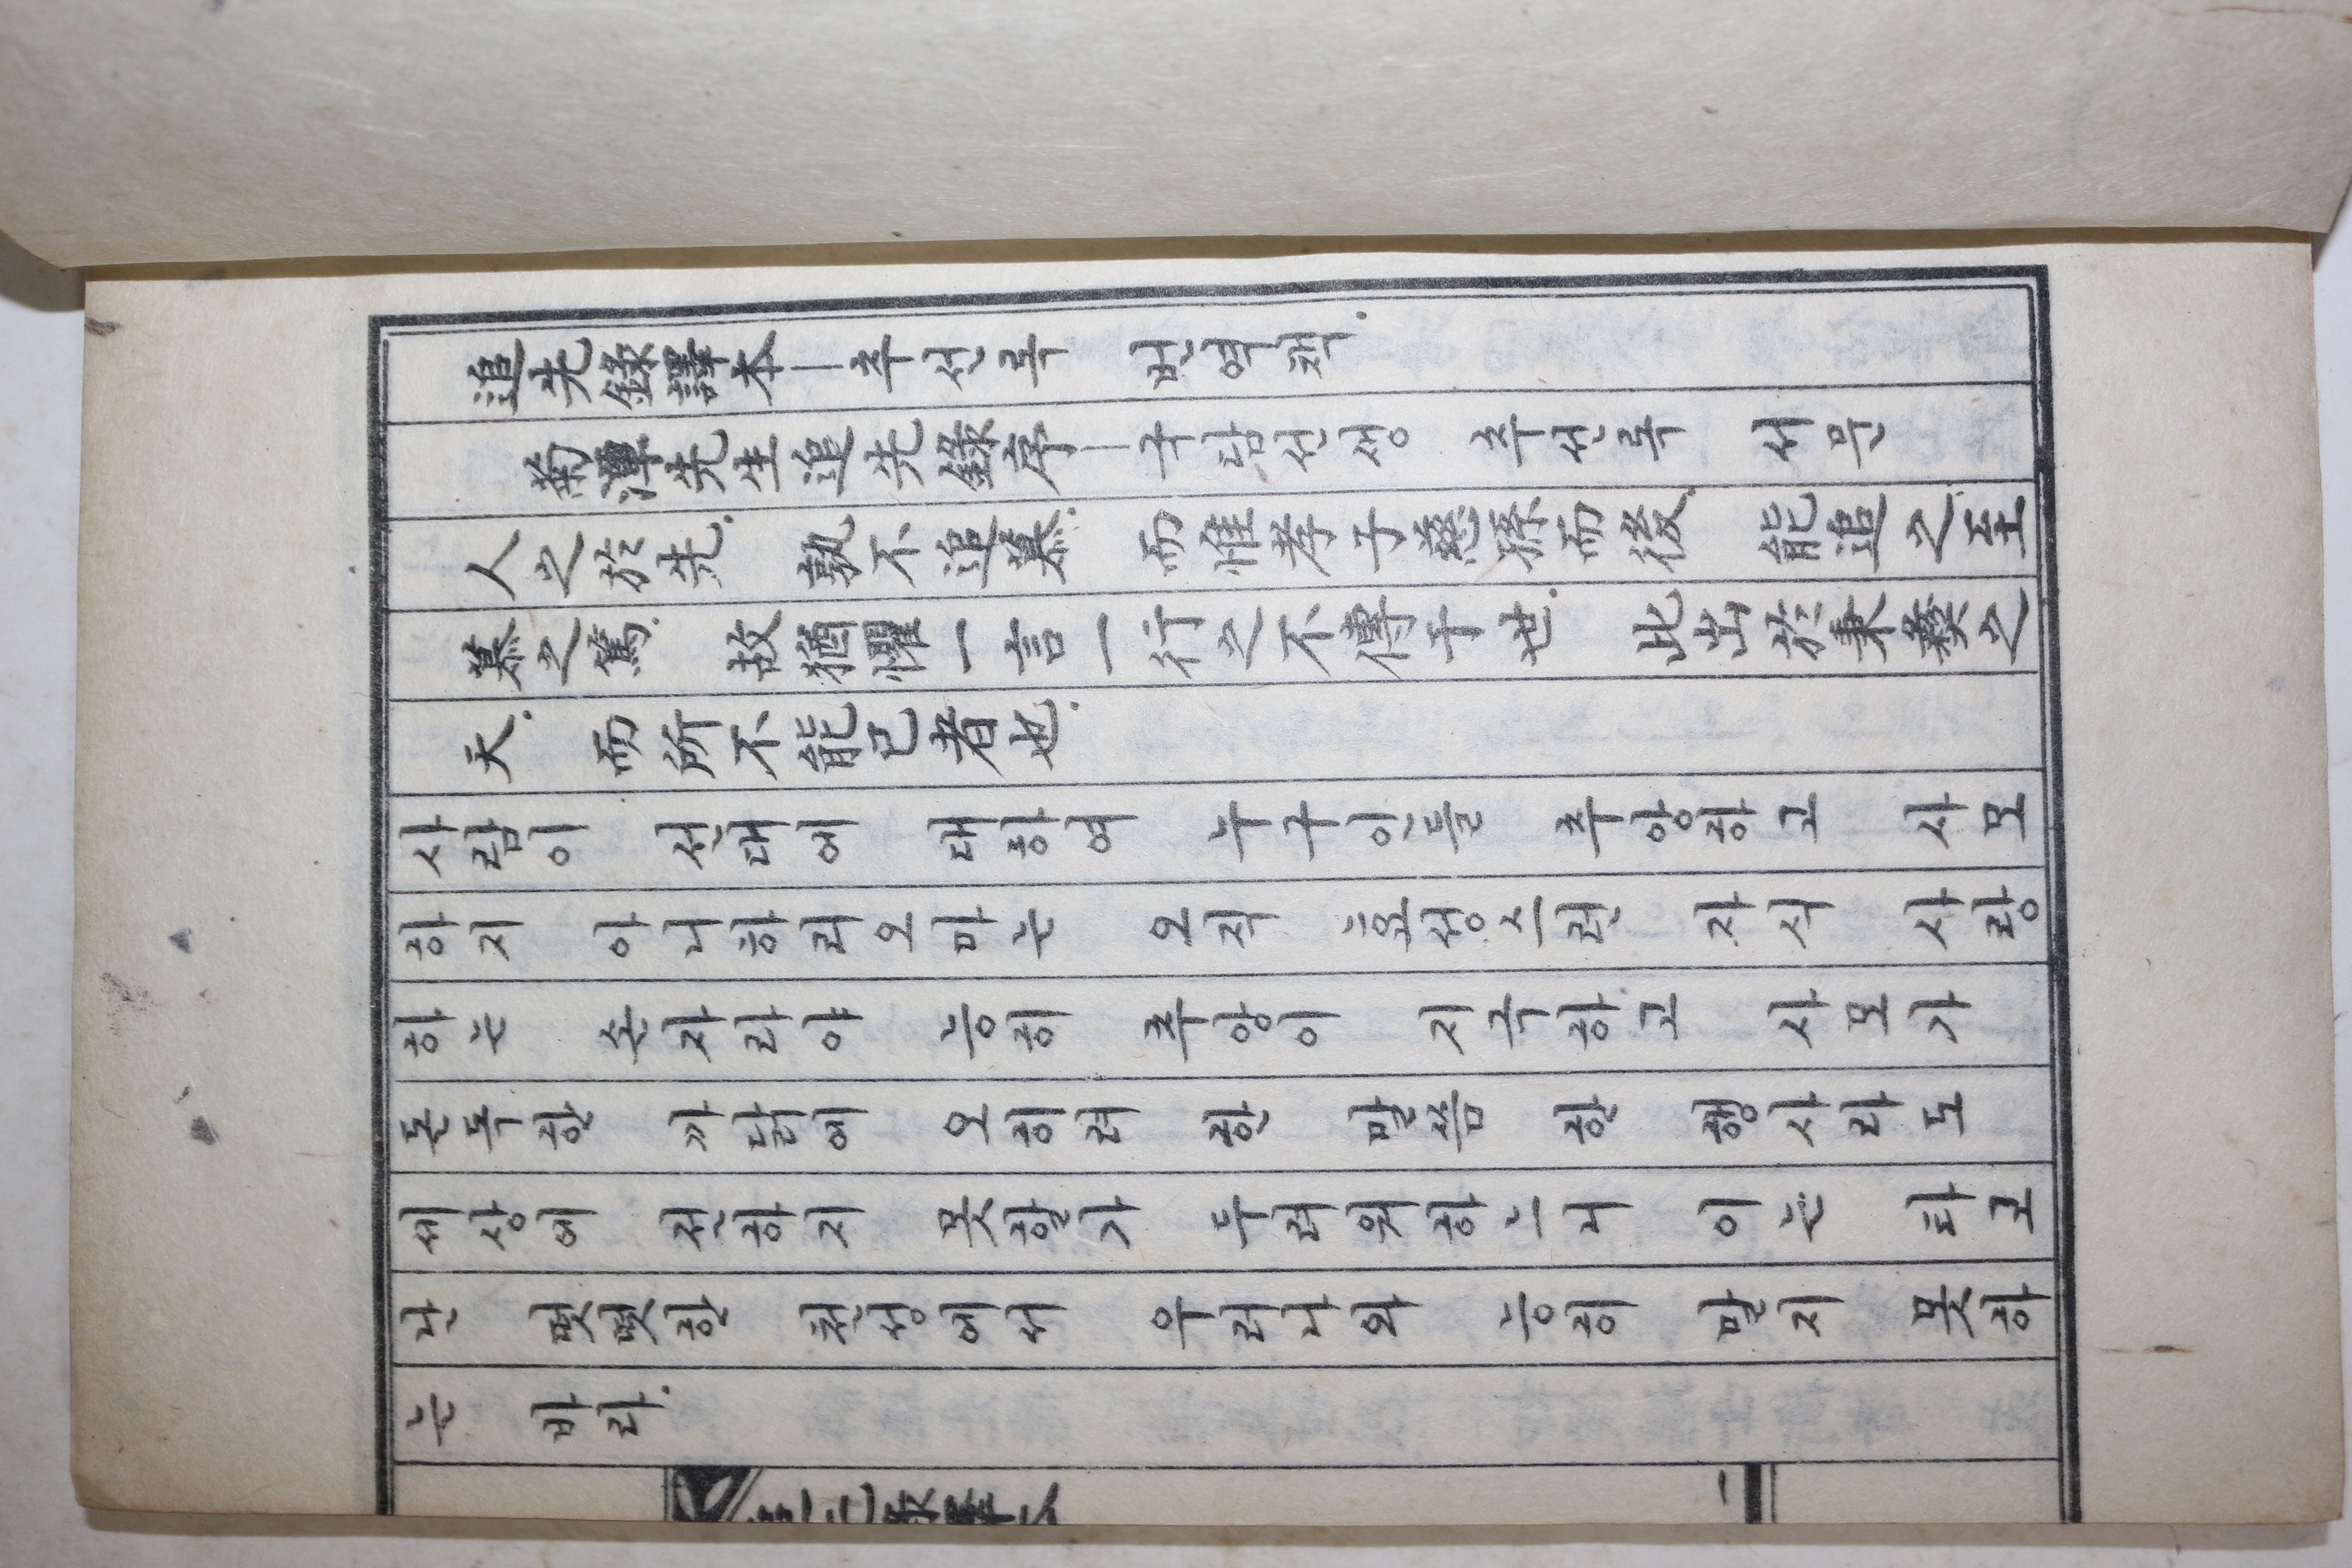 追先錄譯本—추선록 번역책.
菊潭先生追先錄序—국담선생 추선록 서문
人之於先. 孰不追慕. 而惟孝子慈孫而後. 能追之至
慕之篤. 故猶懼一言一行之不傳于世. 此出於秉彝之
天. 而所不能已者也.
사람이 선대에 대하여 누구인들 추앙하고 사모
하지 아니하리오마는 오직 효성스런 자식 사랑
하는 손자라야 능히 추앙이 지극하고 사모가
돈독한 까닭에 오히려 한 말씀 한 행사라도
세상에 전하지 못할가 두려워하느니 이는 타고
난 떳떳한 천성에서 우러나와 능히 말지 못하
는 바라.
一